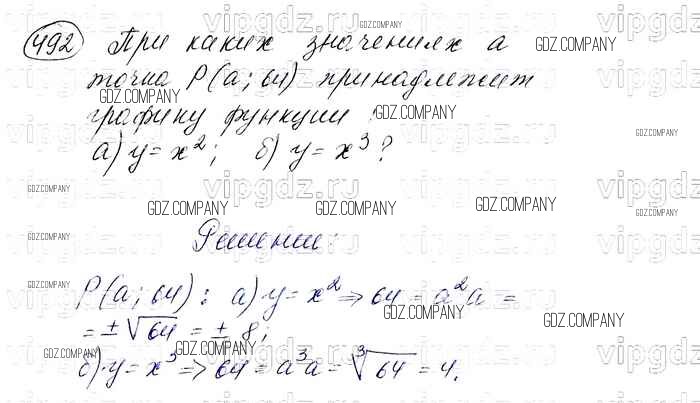 492 При каких значениях а
точка P(a; 64) принадлежит
графику функции
а) y = x²; б) y = x³?
Решение:
P(a; 64): а) y = x² => 64 = a² a =
= ±√64 = ± 8;
б) y = x³ => 64 = a³ a = ³√64 = 4.
GDZ.COMPANY
vipgdz.ru